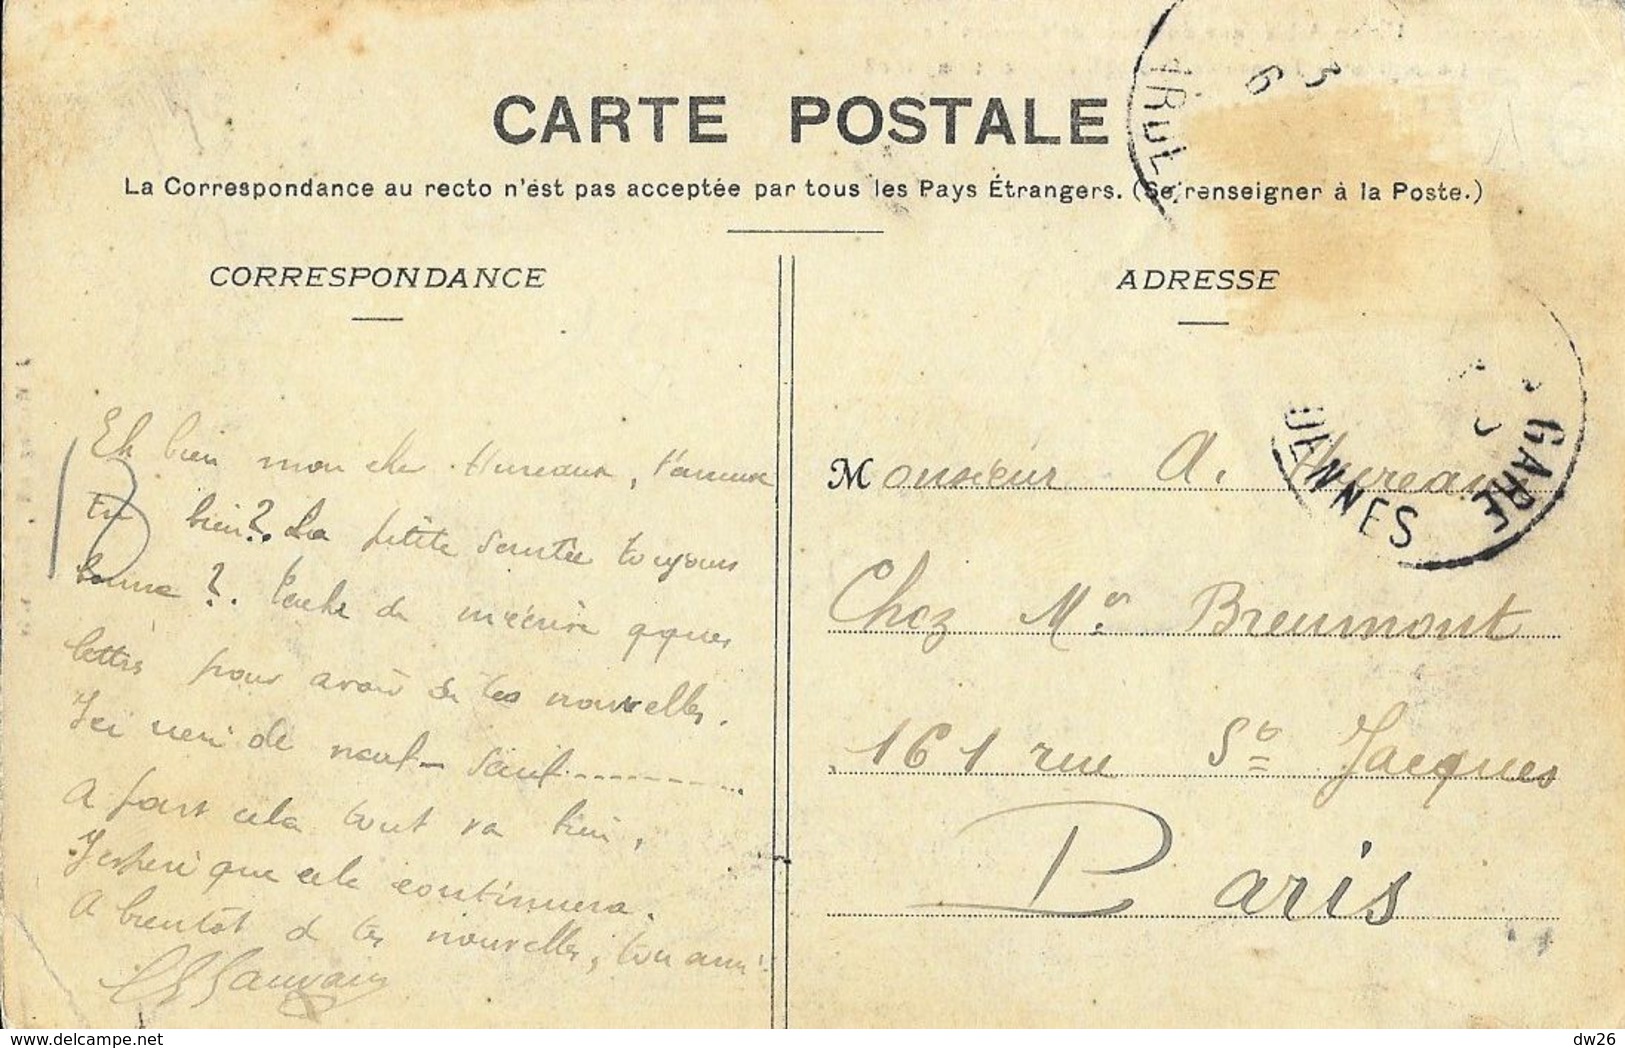 CARTE POSTALE
La Correspondance au recto n'est pas acceptée par tous les Pays Étrangers. (Se renseigner à la Poste.)
CORRESPONDANCE
ADRESSE
Eh bien mon cher Hureaux, t'amuse
tu bien?. La petite santée toujours
bonne?. Tache de m'écrire qques
lettres pour avoir de tes nouvelles.
Ici rien de neuf - sauf
A part cela tout va bien,
J'espère que cela continuera.
A bientôt de tes nouvelles, ton ami
Gauvain
Monsieur A. Hureaux
Chez Mr Breumont
161 rue St Jacques
Paris
GARE
DENNES
3
6
dw26